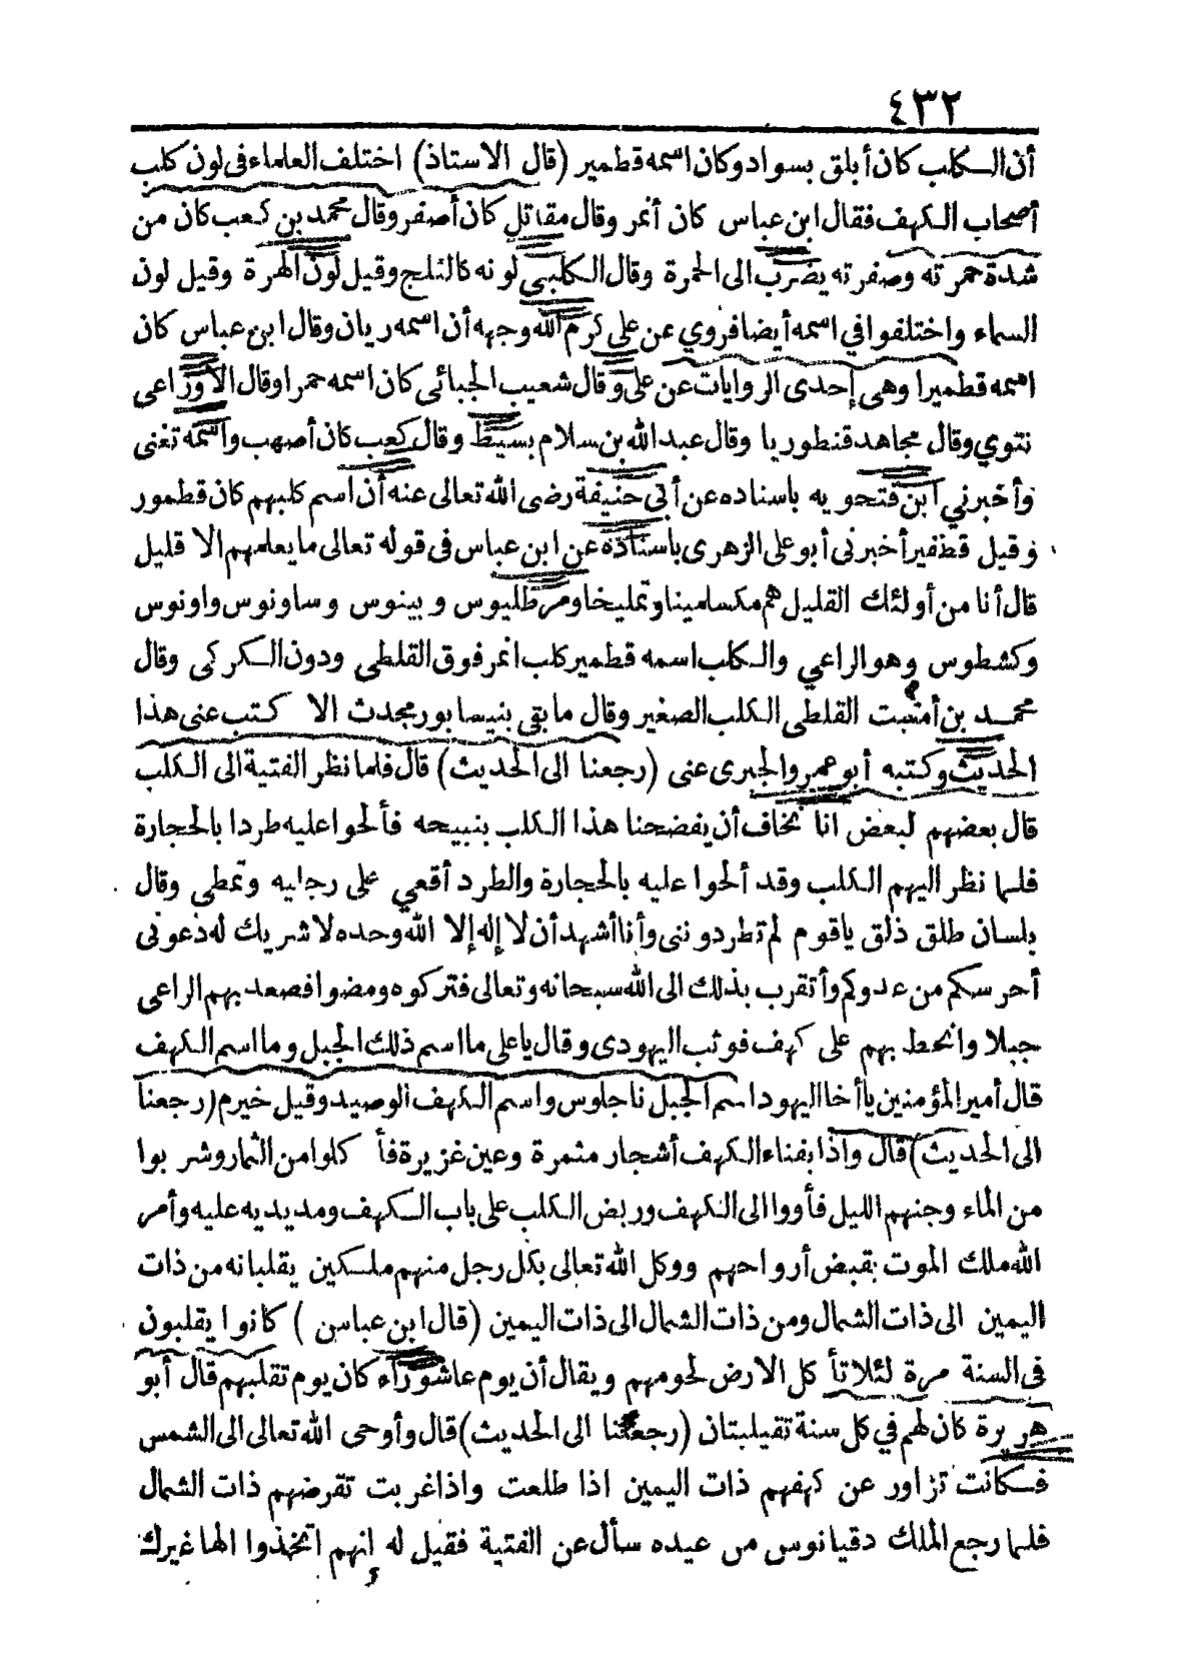 ٤٣٢
أن الكلب كان أبلق بسواد وكان اسمه قطمير (قال الاستاذ) اختلف العلماء فى لون كلب
أصحاب الكهف فقال ابن عباس كان أنمر وقال مقاتل كان أصفر وقال محمد بن كعب كان من
شدة حمرته وصفرته يضرب الى الحمرة وقال الكلبي لونه كالثلج وقيل لون الهرة وقيل لون
السماء واختلفوا في اسمه أيضا فروي عن على كرم الله وجهه أن اسمه ريان وقال ابن عباس كان
اسمه قطميرا وهى إحدى الروايات عن على وقال شعيب الجبائى كان اسمه حمرا وقال الاوزاعى
نتوي وقال مجاهد قنطوريا وقال عبد الله بن سلام بسيط وقال كعب كان أصهب واسمه تغنى
وأخبرني ابن فتحويه باسناده عن أبى حنيفة رضى الله تعالى عنه أن اسم كلبهم كان قطمور
وقيل قطفير أخبرنى أبو على الزهرى باسناده عن ابن عباس فى قوله تعالى ما يعلمهم الا قليل
قال أنا من أولئك القليل هم مكسامينا وتمليخا ومرطليوس وبينوس وساونوس واونوس
وكشطوس وهو الراعي والكلب اسمه قطمير كلب انمر فوق القلطى ودون الكركى وقال
محمد بن أمنبت القلطى الكلب الصغير وقال ما بقى بنيسابور محدث الا كتب عنى هذا
الحديث وكتبه أبو عمرو الجبرى عنى (رجعنا الى الحديث) قال فلما نظر الفتية الى الكلب
قال بعضهم لبعض انا نخاف أن يفضحنا هذا الكلب بنبيحه فألحوا عليه طردا بالحجارة
فلما نظر اليهم الكلب وقد ألحوا عليه بالحجارة والطرد أقعي على رجليه وتمطى وقال
بلسان طلق ذلق ياقوم لم تطردوننى وأنا أشهد أن لا إله إلا الله وحده لا شريك له دعونى
أحرسكم من عدوكم وأتقرب بذلك الى الله سبحانه وتعالى فتركوه ومضوا فصعد بهم الراعى
جبلا وانحط بهم على كهف فوثب اليهودى وقال ياعلى ما اسم ذلك الجبل وما اسم الكهف
قال أمير المؤمنين ياأخا اليهود اسم الجبل ناجلوس واسم الكهف الوصيد وقيل خيرم (رجعنا
الى الحديث) قال واذا بفناء الكهف أشجار مثمرة وعين غزيرة فأكلوا من الثمار وشربوا
من الماء وجنهم الليل فأووا الى الكهف وربض الكلب على باب الكهف ومد يديه عليه وأمر
الله ملك الموت بقبض أرواحهم ووكل الله تعالى بكل رجل منهم ملكين يقلبانه من ذات
اليمين الى ذات الشمال ومن ذات الشمال الى ذات اليمين (قال ابن عباس) كانوا يقلبون
فى السنة مرة لئلا تأكل الارض لحومهم ويقال أن يوم عاشوراء كان يوم تقلبهم قال أبو
هريرة كان لهم في كل سنة تقيلبتان (رجعنا الى الحديث) قال وأوحى الله تعالى الى الشمس
فكانت تزاور عن كهفهم ذات اليمين اذا طلعت واذا غربت تقرضهم ذات الشمال
فلما رجع الملك دقيانوس من عيده سأل عن الفتية فقيل له انهم اتخذوا الها غيرك